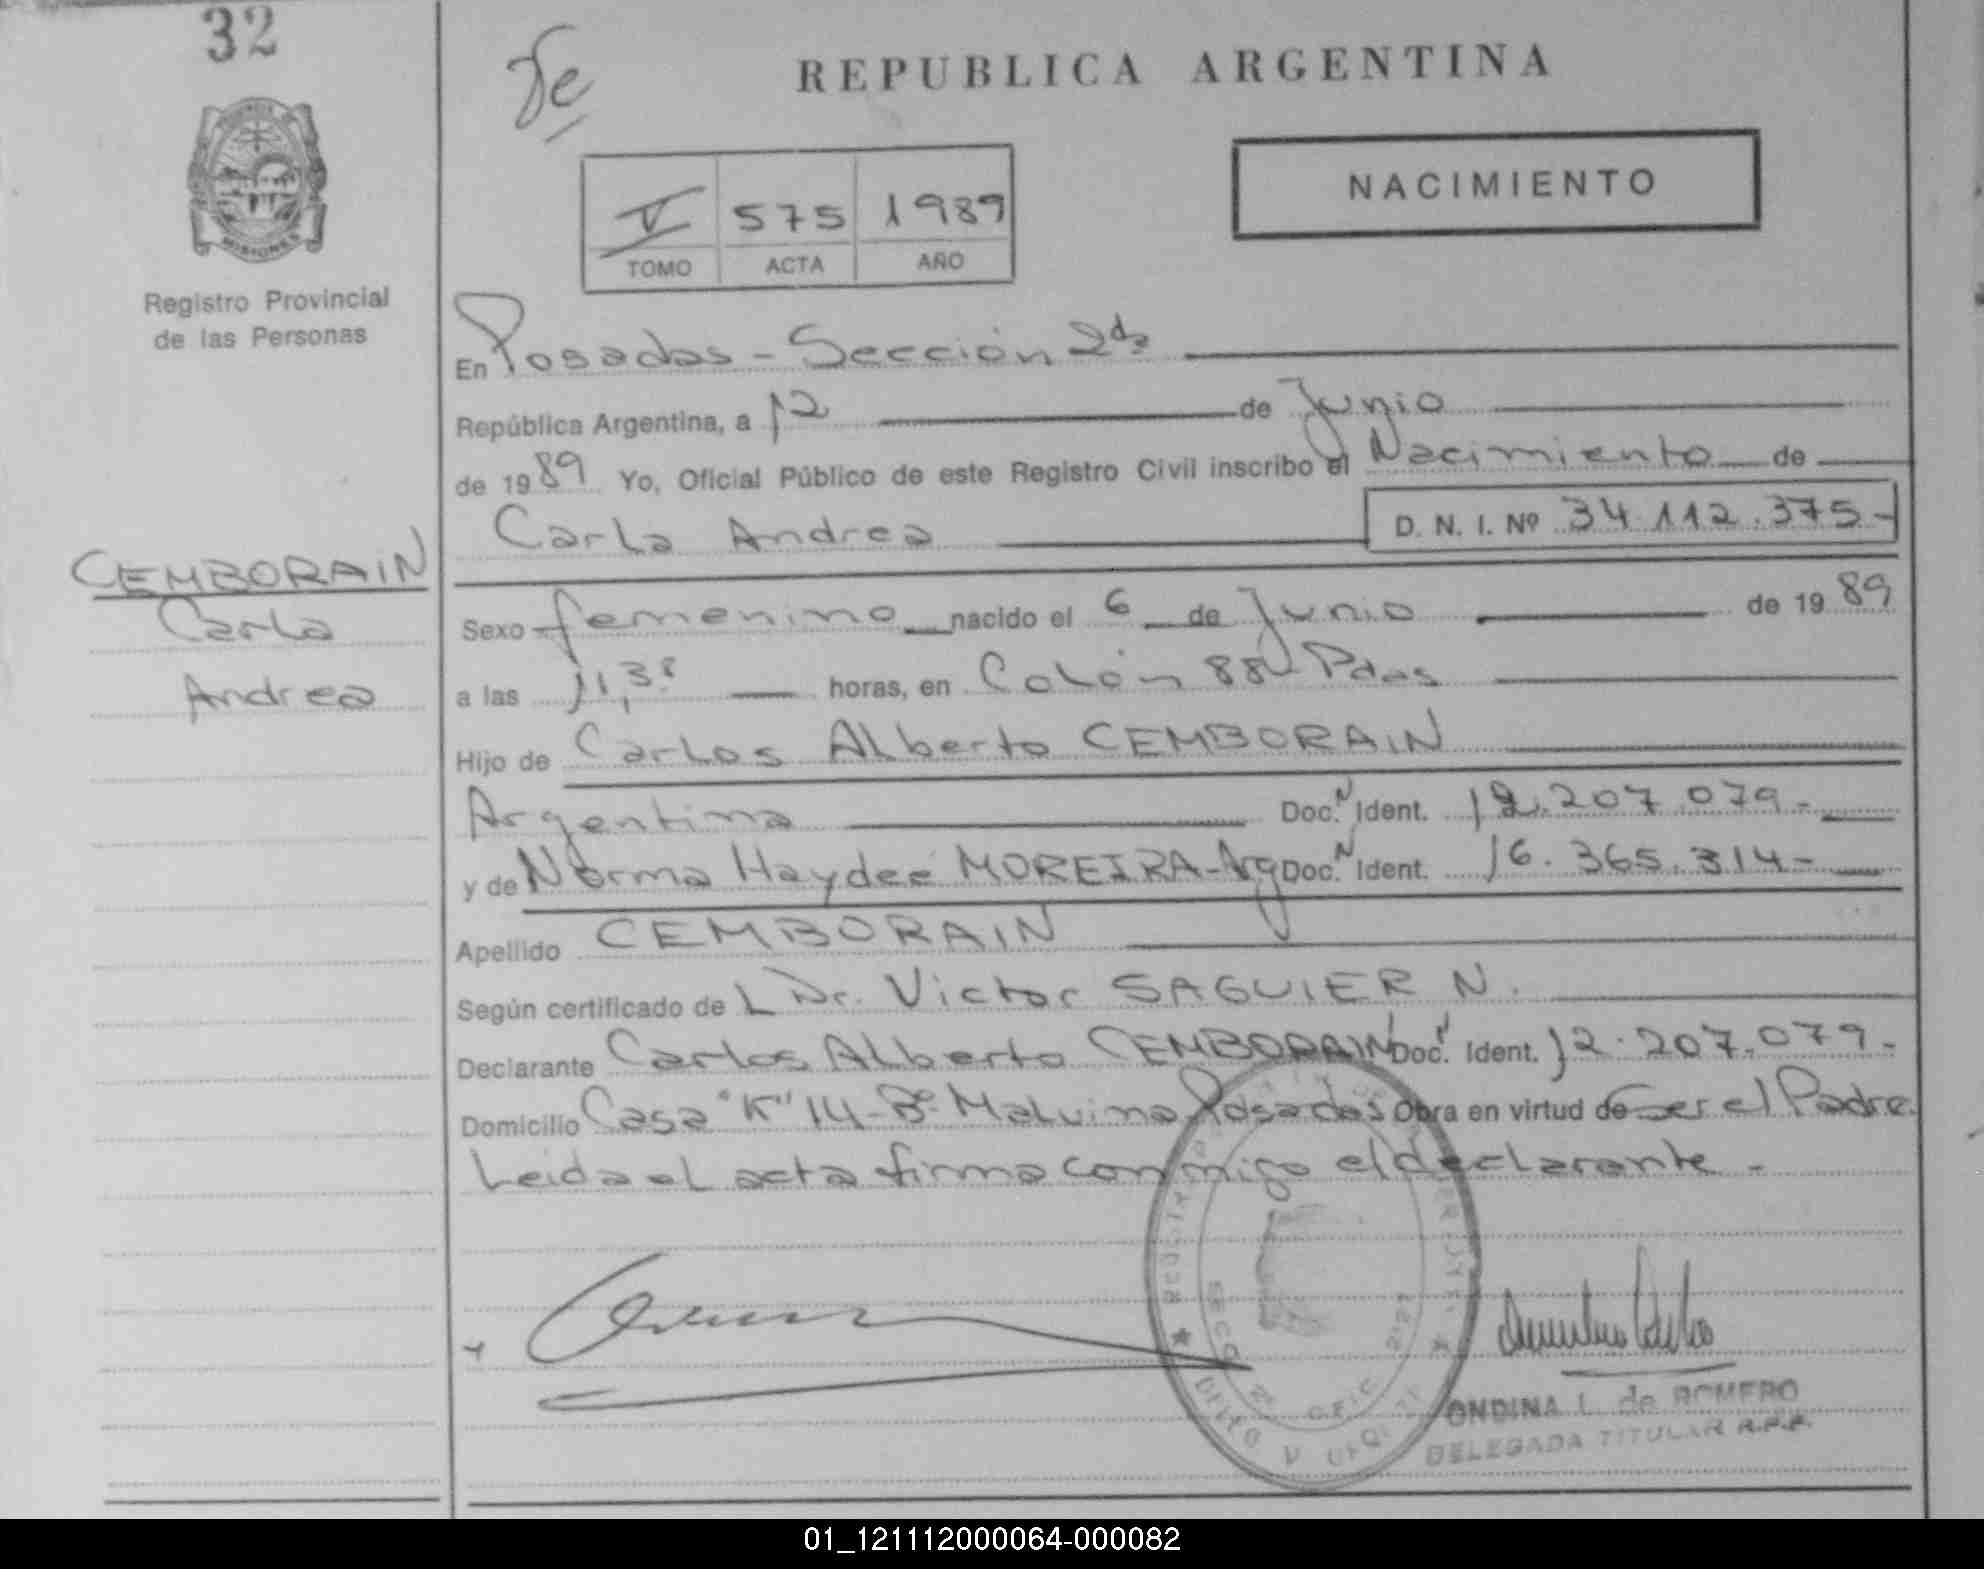 32
REPUBLICA ARGENTINA
NACIMIENTO
V 575 1989
TOMO ACTA AÑO
MISIONES
Registro Provincial
de las Personas
En Posadas - Sección 2da
República Argentina, a 12 de Junio
de 1989 Yo, Oficial Público de este Registro Civil inscribo el Nacimiento de
Carla Andrea D. N. I. Nº 34.112.375-
CEMBORAIN
Carla
Andrea
Sexo femenino nacido el 6 de Junio de 1989
a las 11,30 horas, en Colón Pdas
Hijo de Carlos Alberto CEMBORAIN
Argentina Doc. N Ident. 12.207.079-
y de Norma Haydee MOREIRA-Arg Doc. N Ident. 16.365.314-
Apellido CEMBORAIN
Según certificado de L Dr. Victor SAGUIER N.
Declarante Carlos Alberto CEMBORAIN Doc. N Ident. 12.207.079-
Domicilio Casa "K" 14-Bº Malvina Posadas Obra en virtud de Ser el Padre
Leida el acta firma conmigo el declarante -
ONDINA L. de ROMERO
DELEGADA TITULAR R.P.P.
01_121112000064-000082